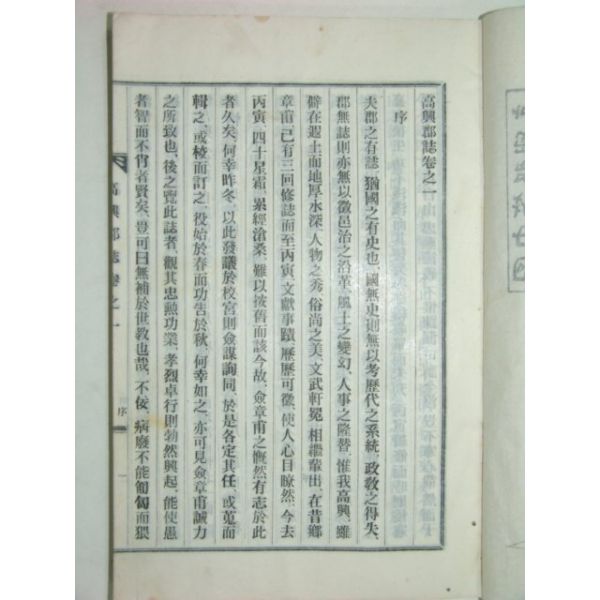 高興郡誌卷之一
序
夫郡之有誌、猶國之有史也、國無史則無以考歷代之系統、政敎之得失、
郡無誌則亦無以徵邑治之沿革、風土之變幻、人事之隆替、惟我高興、雖
僻在遐土而地厚水深、人物之秀、俗尙之美、文武軒冕、相繼輩出、在昔鄕
章甫、己有三回修誌而至丙寅、文獻事蹟、歷歷可徵、使人心目瞭然、今去
丙寅、四十星霜、累經滄桑、難以彼舊而該今故、僉章甫之慨然有志於此
者久矣、何幸昨冬、以此發議於校宮則僉謀詢同、於是各定其任、或蒐而
輯之、或楂而訂之、役始於春而功告於秋、何幸如之、亦可見僉章甫誠力
之所致也、後之覽此誌者、觀其忠勳功業、孝烈卓行則勃然興起、能使愚
者智而不肖者賢矣、豈可曰無補於世敎也哉、不佞、病廢不能匍匐而猥
高興郡誌卷之一
序
一